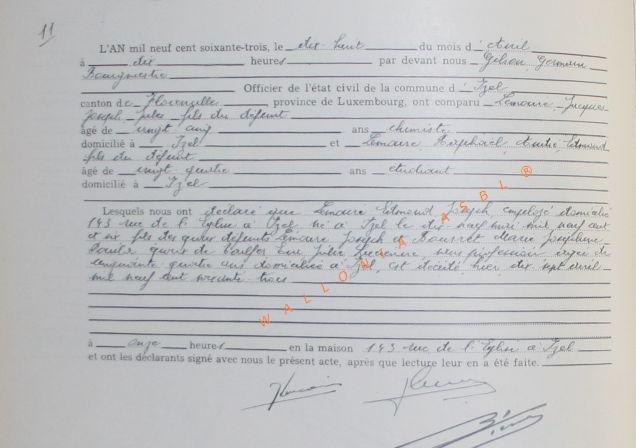 11
L'AN mil neuf cent soixante-trois, le dix huit du mois d'avril
à dix heures par devant nous Gelson, Germain
Bourgmestre
Officier de l'état civil de la commune d'Izel
canton de Florenville province de Luxembourg, ont comparu Lemaire, Jacques
Joseph, Jules fils du défunt
âgé de vingt ans chimiste
domicilié à Izel et Lemaire, Raphaël, André, Edmond
fils du défunt
âgé de vingt quatre ans étudiant
domicilié à Izel
Lesquels nous ont déclaré que Lemaire Edmond Joseph, employé domicilié
143 rue de l'Eglise à Izel né à Izel le dix neuf mil neuf cent
et six fils des défunts Lemaire Joseph et Marie Joséphine
époux de Julie sans profession âgée de
cinquante quatre ans domiciliée à Izel, est décédé hier dix sept avril
mil neuf cent soixante trois
à onze heures en la maison 143 rue de l'Eglise à Izel
et ont les déclarants signé avec nous le présent acte, après que lecture leur en a été faite.
WALLONIA ASBL ®